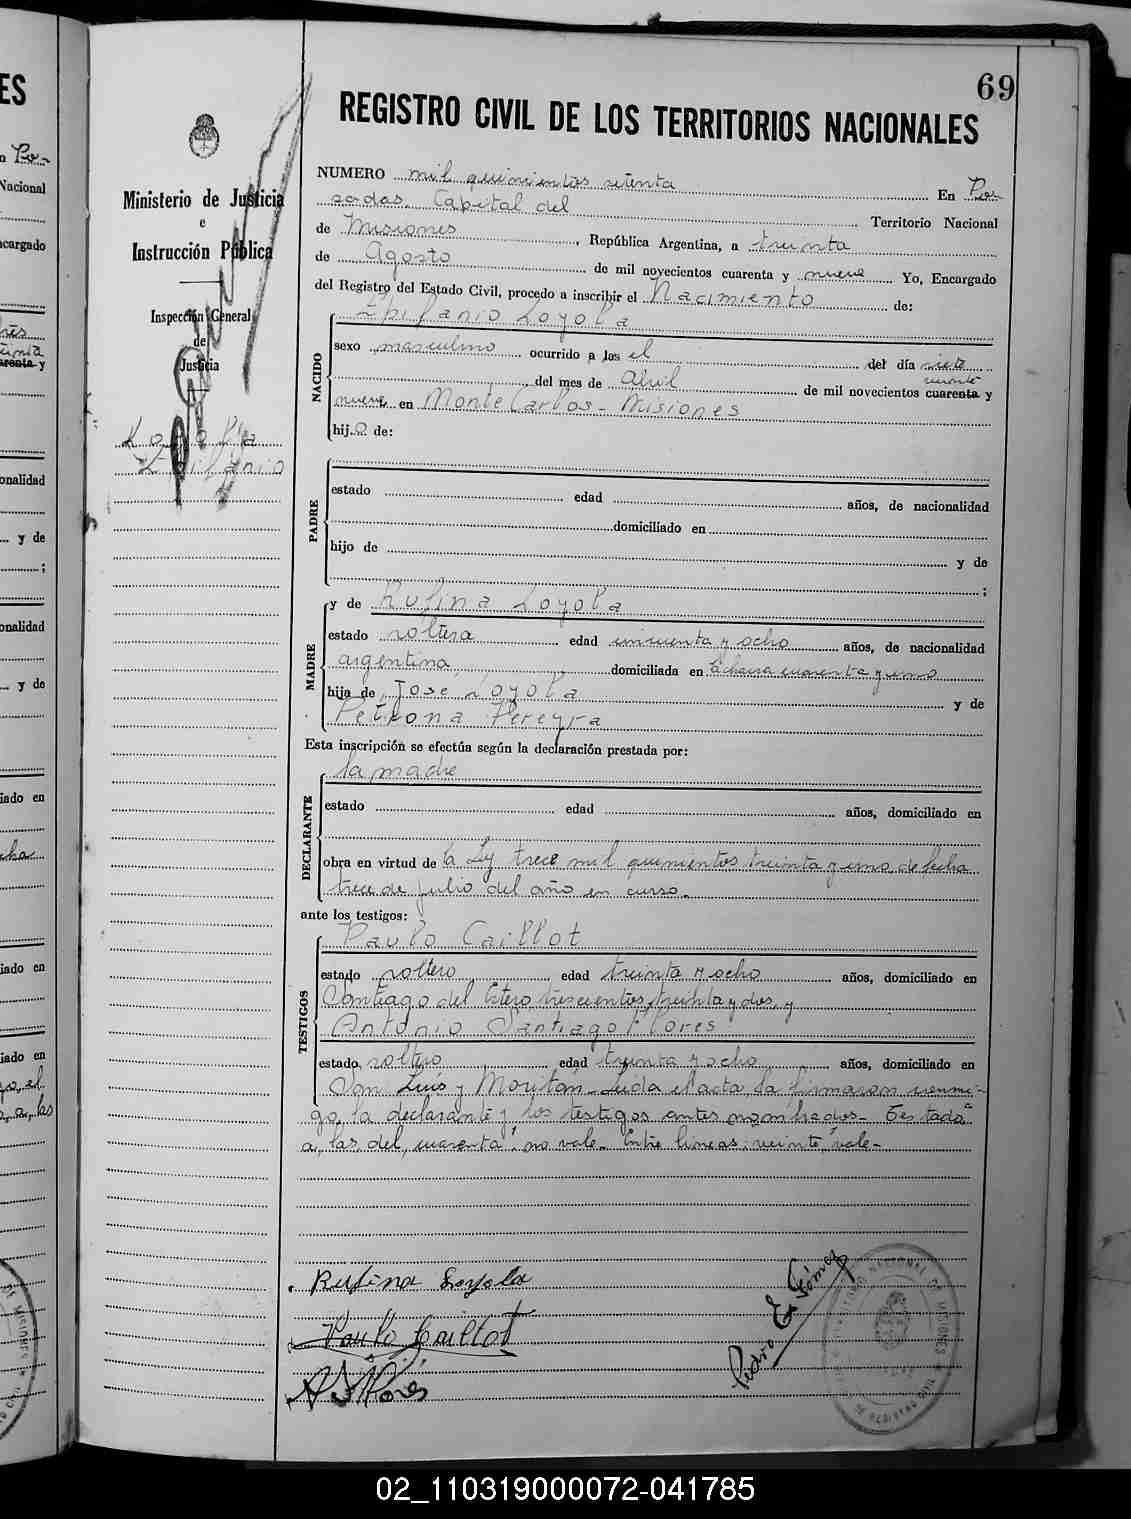 69
REGISTRO CIVIL DE LOS TERRITORIOS NACIONALES
Ministerio de Justicia
e
Instrucción Pública
Inspección General
de
Justicia
Loyola
Epifanio
NUMERO mil quinientos setenta En Po-
sadas. Capital del Territorio Nacional
de Misiones, República Argentina, a treinta
de Agosto de mil novecientos cuarenta y nueve Yo, Encargado
del Registro del Estado Civil, procedo a inscribir el Nacimiento de:
NACIDO
Epifanio Loyola
sexo masculino ocurrido a las el del día siete
del mes de Abril de mil novecientos cuarenta y
veinte
nueve en Monte Carlos - Misiones
hijo de:
PADRE
estado edad años, de nacionalidad
domiciliado en
hijo de y de
;
MADRE
y de Rufina Loyola
estado soltera edad cincuenta y ocho años, de nacionalidad
argentina, domiciliada en chacra cuarenta y uno
hija de José Loyola y de
Petrona Pereyra
Esta inscripción se efectúa según la declaración prestada por:
DECLARANTE
la madre
estado edad años, domiciliado en
obra en virtud de la Ley trece mil quinientos treinta y uno, de fecha
trece de julio del año en curso.
ante los testigos:
TESTIGOS
Paulo Caillot
estado soltero edad treinta y ocho años, domiciliado en
Santiago del Estero trescientos treinta y dos, y
Antonio Santiago Flores
estado soltero edad treinta y ocho años, domiciliado en
San Luis y Moritán. Leída el acta, la firmaron conmi-
go, la declarante y los testigos antes nombrados. - Testado "
a, las, del, cuarenta": no vale. Entre líneas: veinte, vale -
Rufina Loyola
Paulo Caillot
A S Flores
Pedro E. Gómez
02_110319000072-041785